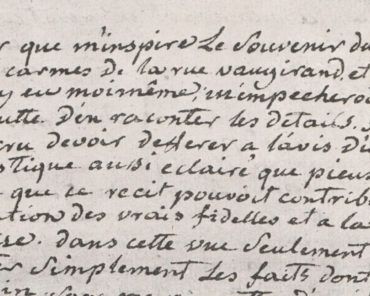 r que m'inspire Le Souvenir du
carmes de la rue vaugirand, et
y eu moi même, m'impecheroi
utte d'en raconter les details.
cru devoir defferer a l'avis d'u
stique aussi eclairé que pieus
que ce recit pouvoit contrib
ation des vrais fidelles et a la
ise. dans cette vue seulement
simplement Les faits dont